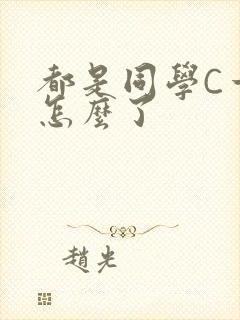 都是同學C一
怎麼了
趙光